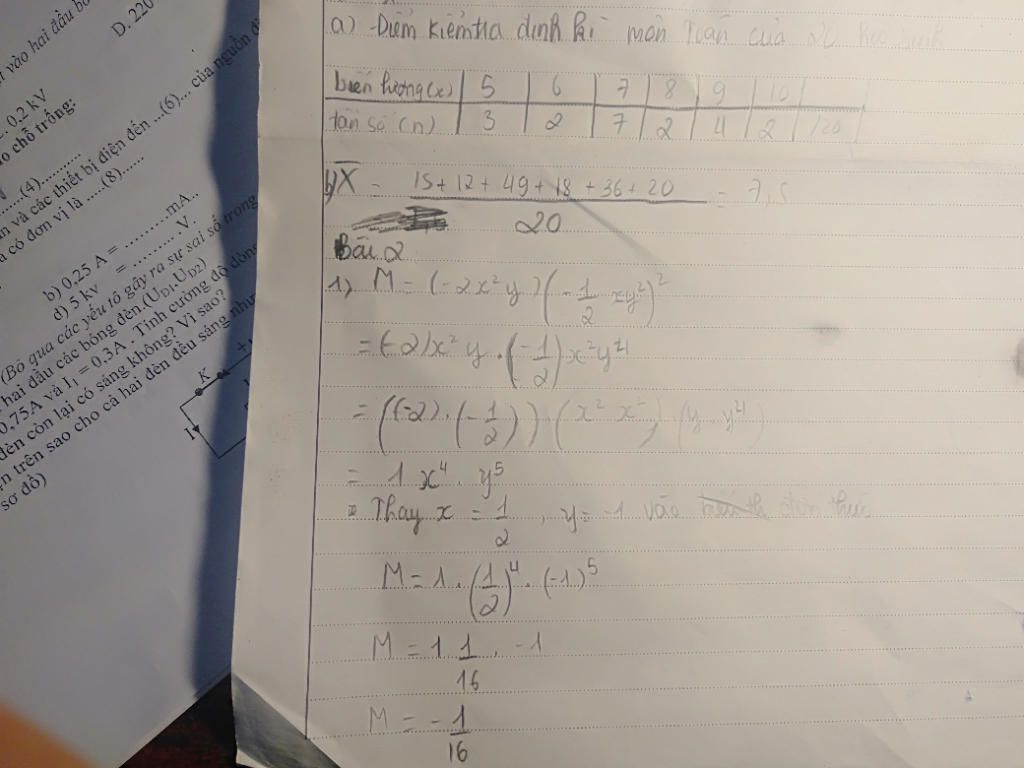 D. 220
t vào hai đầu bó
0,2 kV
o chỗ trống:
...(4)..........
n và các thiết bị điện đến ...(6)... của nguồn đi
a có đơn vị là ......(8).....
b) 0,25 A = ............mA..
d) 5 kv = ............ V.
(Bỏ qua các yếu tố gây ra sự sai số trong
hai đầu các bóng đèn.(UD1,UD2)
0,75A và I1 = 0,3A . Tính cường độ dòng
đèn còn lại có sáng không? Vì sao?
n trên sao cho cả hai đèn đều sáng như
sơ đồ)
K
+
I
a) Điểm kiểm tra định kì môn Toán của 20 học sinh
biến lượng (x) 5 6 7 8 9 10
tần số (n) 3 2 7 2 4 2 20
b) X̅ = (15 + 12 + 49 + 18 + 36 + 20)/20 = 7,5
Bài 2
1) M = (-2x²y)(-1/2 xy²)²
= (-2)x²y.(-1/2)x²y⁴
= ((-2).(-1/2))(x² x²)(y y⁴)
= 1 x⁴. y⁵
Thay x = 1/2 , y = -1 vào đơn thức
M = 1.(1/2)⁴.(-1)⁵
M = 1 1/16 . -1
M = -1/16